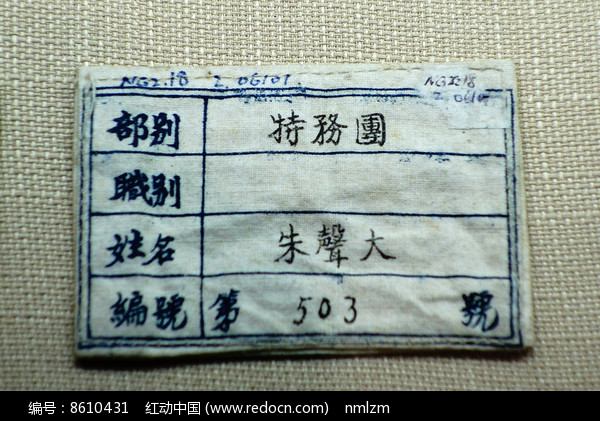 NG2.18 2.06101
NG2.18
2.0610
部别 特務團
職别
姓名 朱聲大
編號 第 503 號
编号：8610431 红动中国 (www.redocn.com) nmlzm